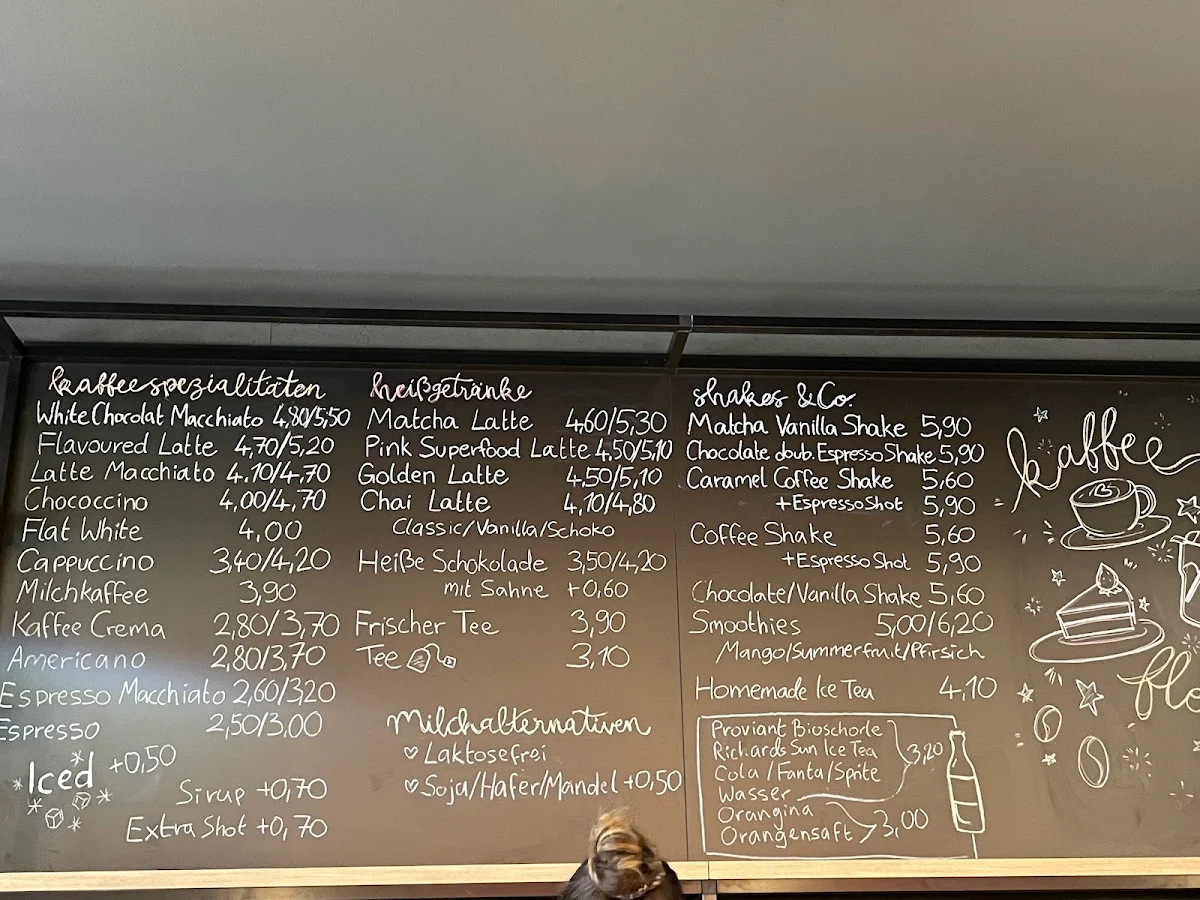 kaffeespezialitäten
White Chocolat Macchiato 4,80/5,50
Flavoured Latte 4,70/5,20
Latte Macchiato 4,10/4,70
Chococcino 4,00/4,70
Flat White 4,00
Cappuccino 3,40/4,20
Milchkaffee 3,90
Kaffee Crema 2,80/3,70
Americano 2,80/3,70
Espresso Macchiato 2,60/3,20
Espresso 2,50/3,00
Iced +0,50
Sirup +0,70
Extra Shot +0,70
heißgetränke
Matcha Latte 4,60/5,30
Pink Superfood Latte 4,50/5,10
Golden Latte 4,50/5,10
Chai Latte 4,10/4,80
Classic/Vanilla/Schoko
Heiße Schokolade 3,50/4,20
mit Sahne +0,60
Frischer Tee 3,90
Tee 3,10
Milchalternativen
♡ Laktosefrei
♡ Soja/Hafer/Mandel +0,50
shakes & Co.
Matcha Vanilla Shake 5,90
Chocolate doub. Espresso Shake 5,90
Caramel Coffee Shake 5,60
+Espresso Shot 5,90
Coffee Shake 5,60
+Espresso Shot 5,90
Chocolate/Vanilla Shake 5,60
Smoothies 5,00/6,20
Mango/Summerfruit/Pfirsich
Homemade Ice Tea 4,10
Proviant Bioschorle
Richards Sun Ice Tea 3,20
Cola/Fanta/Spite
Wasser
Orangina
Orangensaft 3,00
kaffee
flo